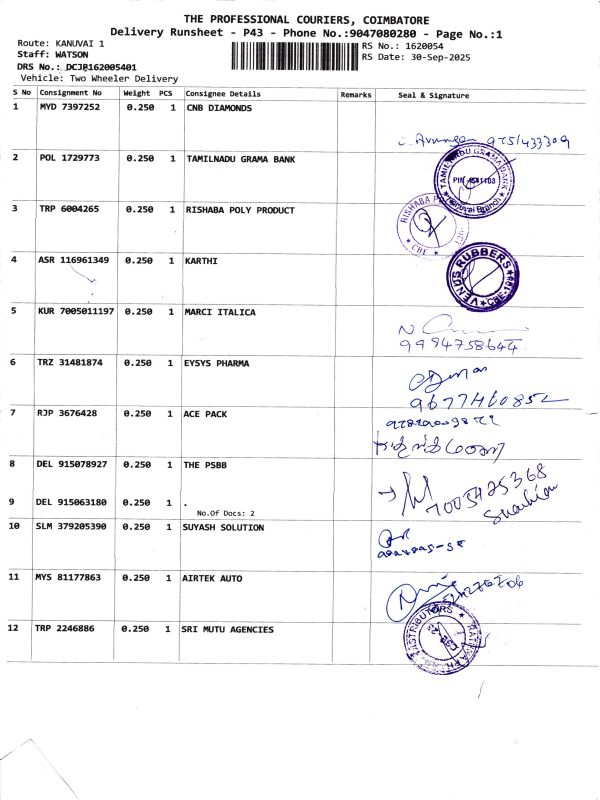 THE PROFESSIONAL COURIERS, COIMBATORE
Delivery Runsheet - P43 - Phone No.:9047080280 - Page No.:1
Route: KANUVAI 1
Staff: WATSON
DRS No.: DCJB162005401
Vehicle: Two Wheeler Delivery
RS No.: 1620054
RS Date: 30-Sep-2025
S No Consignment No Weight PCS Consignee Details Remarks Seal & Signature
1 MYD 7397252 0.250 1 CNB DIAMONDS
2 POL 1729773 0.250 1 TAMILNADU GRAMA BANK
3 TRP 6004265 0.250 1 RISHABA POLY PRODUCT
RISHABA
CBE
4 ASR 116961349 0.250 1 KARTHI
VENUS RUBBERS
5 KUR 7005011197 0.250 1 MARCI ITALICA
9994758644
6 TRZ 31481874 0.250 1 EYSYS PHARMA
7 RJP 3676428 0.250 1 ACE PACK
8 DEL 915078927 0.250 1 THE PSBB
7005425368
9 DEL 915063180 0.250 1 .
No.Of Docs: 2
10 SLM 379205390 0.250 1 SUYASH SOLUTION
11 MYS 81177863 0.250 1 AIRTEK AUTO
12 TRP 2246886 0.250 1 SRI MUTU AGENCIES